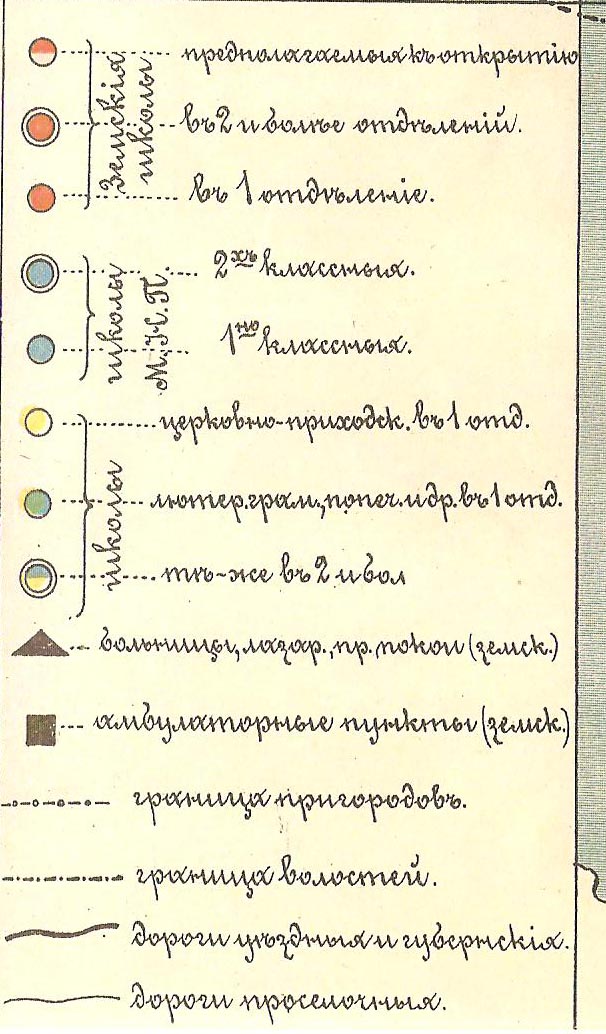 Земскія
школы
предполагаемыя къ открытію
въ 2 и болѣе отдѣленій.
въ 1 отдѣленіе.
школы
М.Н.П.
2хъ классныя.
1но классныя.
школы
церковно-приходск. въ 1 отд.
лютер. грам., попеч. и др. въ 1 отд.
тѣ-же въ 2 и бол
больницы, лазар., пр. покои (земск.)
амбулаторные пункты (земск.)
граница пригородовъ.
граница волостей.
дороги уѣздныя и губернскія.
дороги проселочныя.